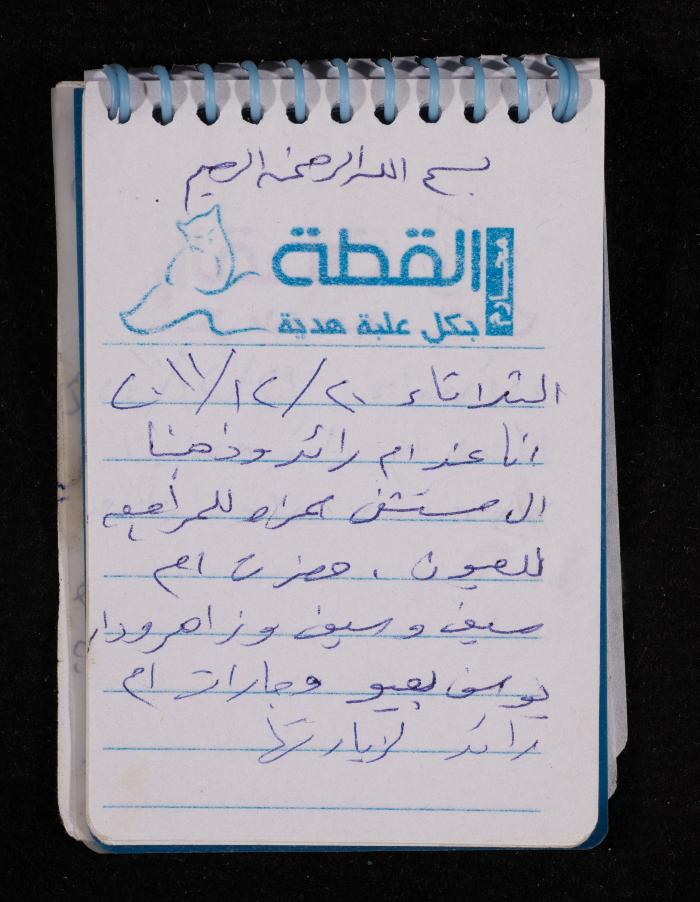 بسم الله الرحمن الرحيم
محارم القطة
بكل علبة هدية
الثلاثاء ٢٠/١٢/٢٠١١
انا عند ام رائد وذهبنا
ال مستشفى للمراجعه
للعيون . حضرت ام
سيف وسيف وزاهر ودار
يوسف وجارات ام
رائد لزيارتها